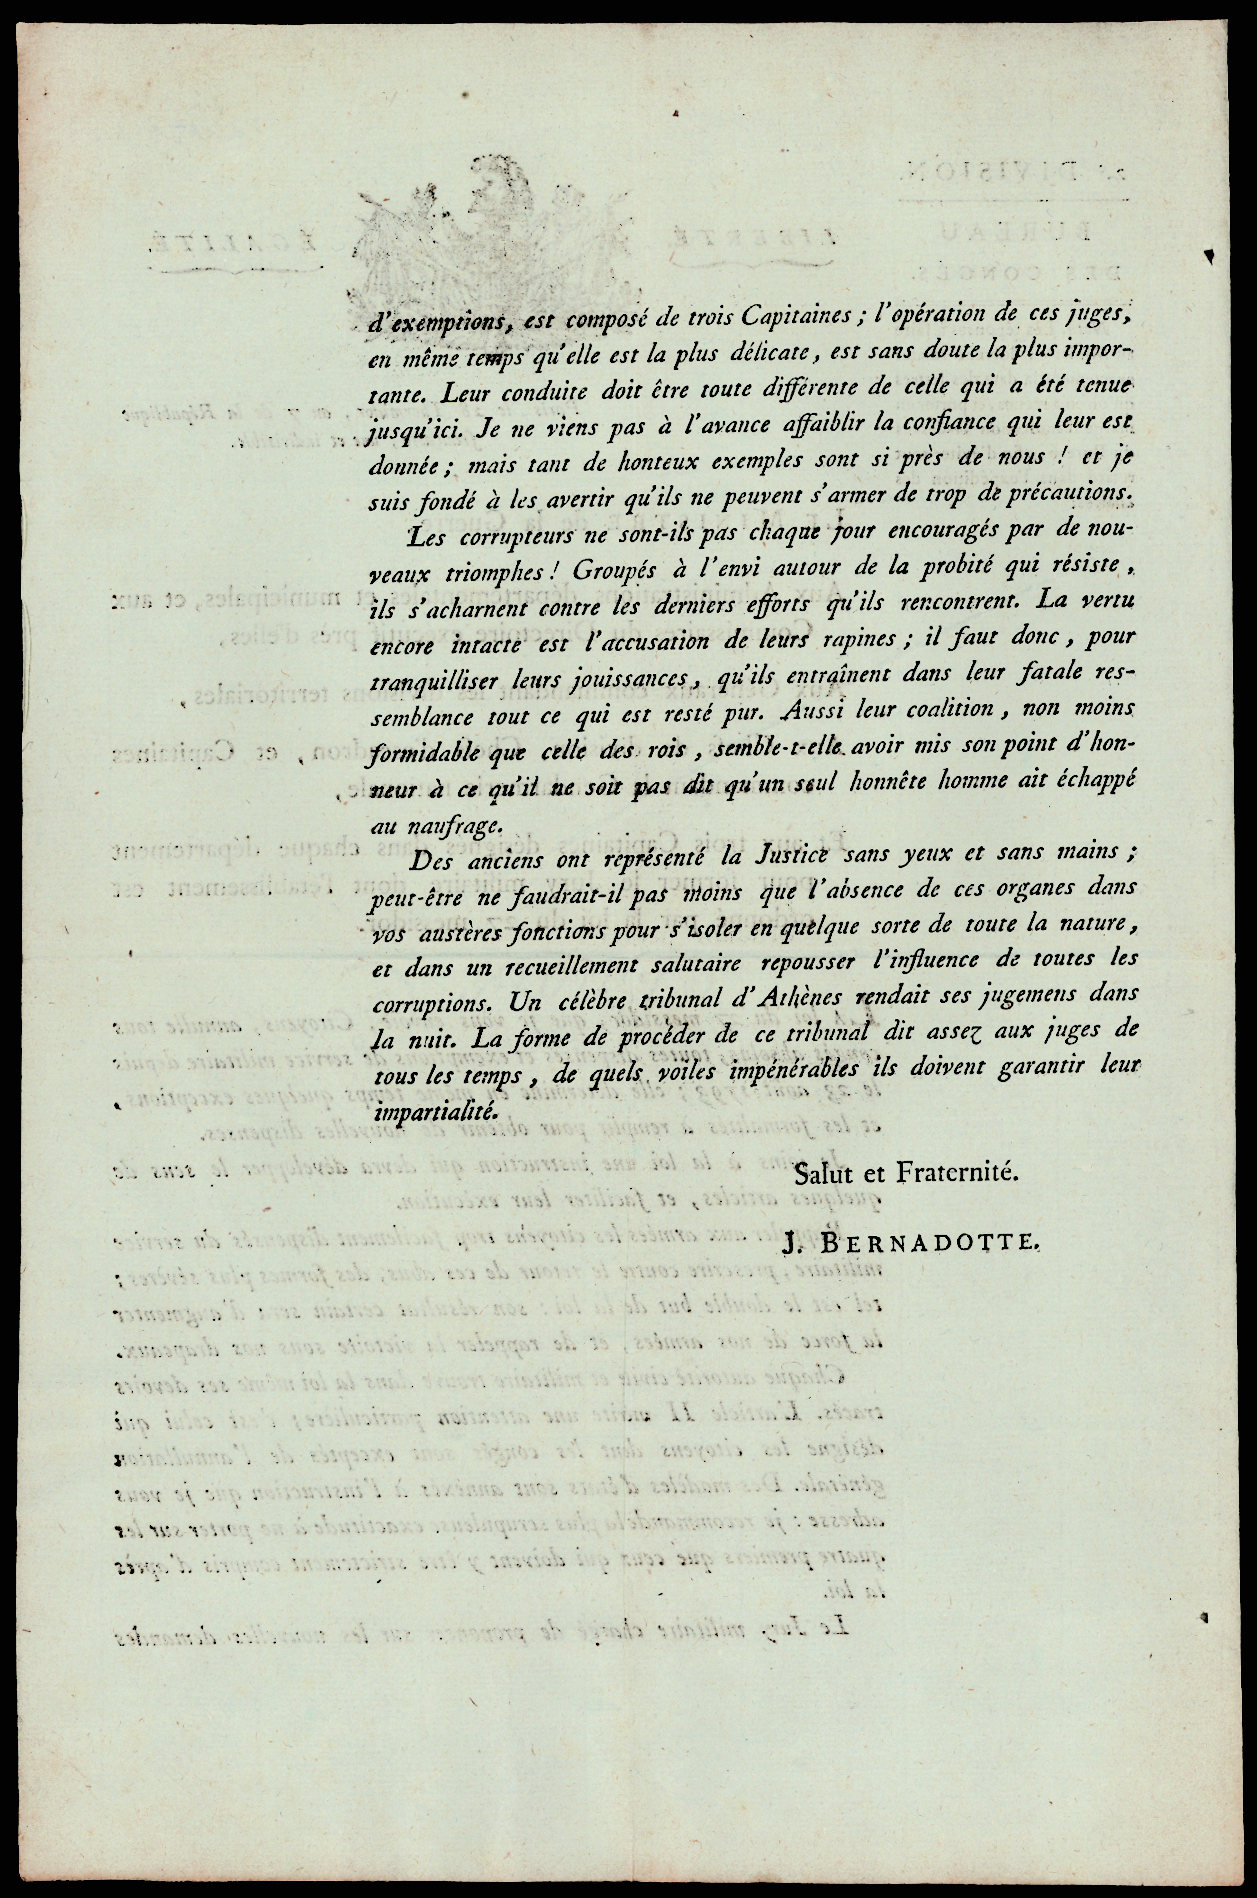 d'exemptions, est composé de trois Capitaines ; l'opération de ces juges,
en même temps qu'elle est la plus délicate, est sans doute la plus impor-
tante. Leur conduite doit être toute différente de celle qui a été tenue
jusqu'ici. Je ne viens pas à l'avance affaiblir la confiance qui leur est
donnée ; mais tant de honteux exemples sont si près de nous ! et je
suis fondé à les avertir qu'ils ne peuvent s'armer de trop de précautions.
Les corrupteurs ne sont-ils pas chaque jour encouragés par de nou-
veaux triomphes ! Groupés à l'envi autour de la probité qui résiste,
ils s'acharnent contre les derniers efforts qu'ils rencontrent. La vertu
encore intacte est l'accusation de leurs rapines ; il faut donc, pour
tranquilliser leurs jouissances, qu'ils entraînent dans leur fatale res-
semblance tout ce qui est resté pur. Aussi leur coalition, non moins
formidable que celle des rois, semble-t-elle avoir mis son point d'hon-
neur à ce qu'il ne soit pas dit qu'un seul honnête homme ait échappé
au naufrage.
Des anciens ont représenté la Justice sans yeux et sans mains ;
peut-être ne faudrait-il pas moins que l'absence de ces organes dans
vos austères fonctions pour s'isoler en quelque sorte de toute la nature,
et dans un recueillement salutaire repousser l'influence de toutes les
corruptions. Un célèbre tribunal d'Athènes rendait ses jugemens dans
la nuit. La forme de procéder de ce tribunal dit assez aux juges de
tous les temps, de quels voiles impénérables ils doivent garantir leur
impartialité.
Salut et Fraternité.
J. BERNADOTTE.